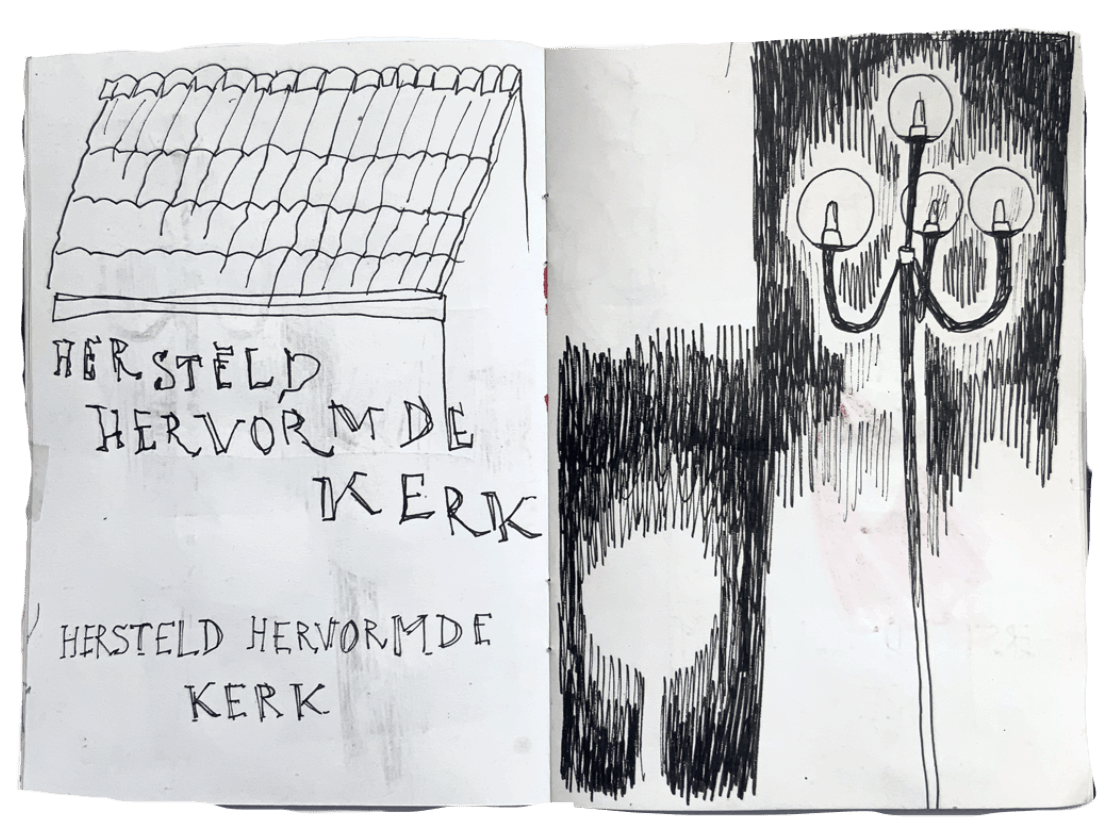 HERSTELD
HERVORMDE
KERK
HERSTELD HERVORMDE
KERK